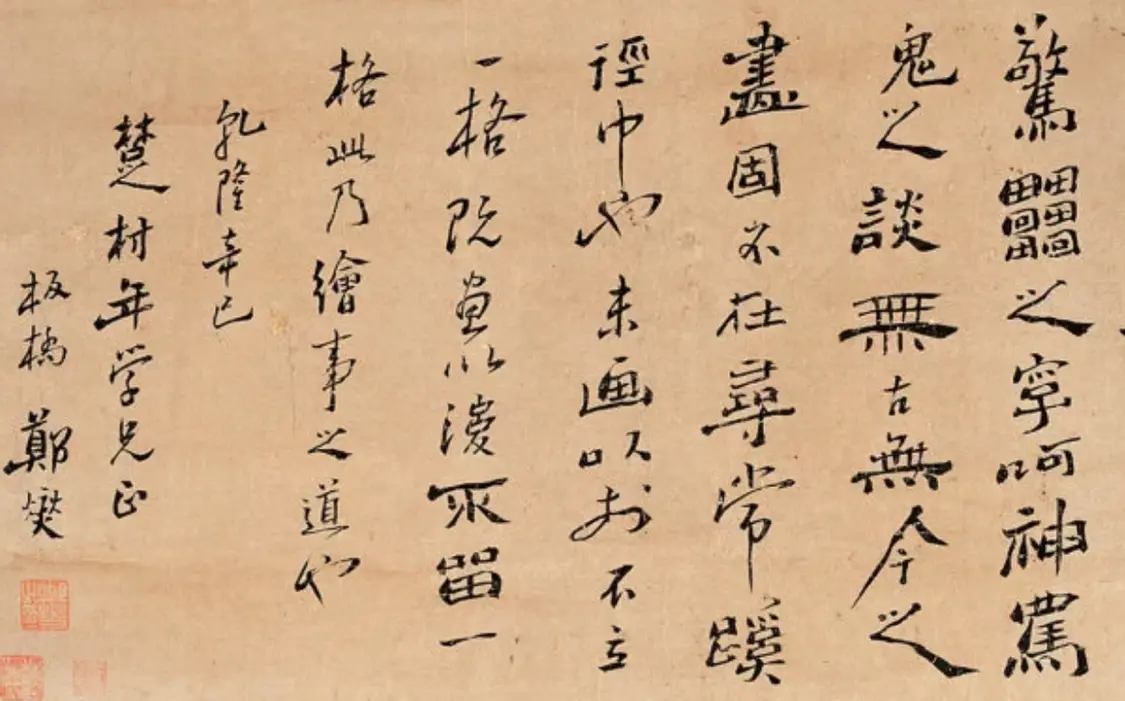 驚靁之字呵神罵
鬼之談無古無今之
畫固不在尋常蹊
徑中也未画以前不立
一格既畫以後不留一
格此乃繪事之道也
乾隆辛巳
楚村年学兄正
板橋鄭燮